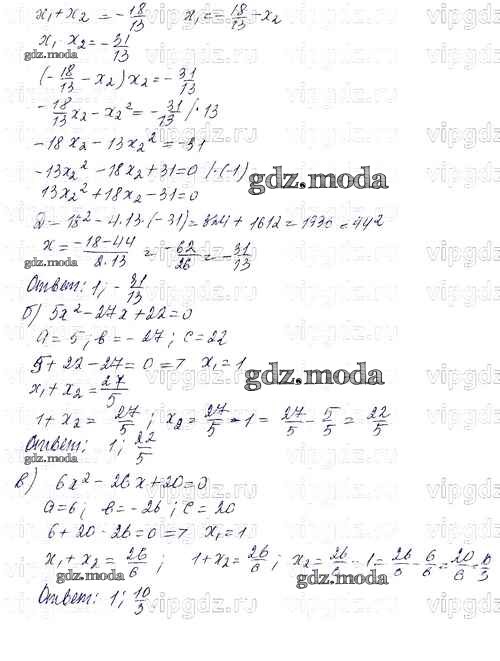 x₁+x₂ = -18/13    x₁ = -18/13 - x₂
x₁·x₂ = -31/13
gdz.moda
(-18/13 - x₂)x₂ = -31/13
-18/13x₂ - x₂² = -31/13 /·13
-18x₂ - 13x₂² = -31
-13x₂² - 18x₂ + 31 = 0 /·(-1)
gdz.moda
13x₂² + 18x₂ - 31 = 0
D = 18² - 4·13·(-31) = 324 + 1612 = 1936 = 44²
x = (-18-44)/(2·13) = -62/26 = -31/13
gdz.moda
Ответ: 1; -31/13
б) 5x² - 27x + 22 = 0
a = 5; в = -27; c = 22
5 + 22 - 27 = 0 => x₁ = 1
gdz.moda
x₁ + x₂ = 27/5
1 + x₂ = 27/5; x₂ = 27/5 - 1 = 27/5 - 5/5 = 22/5
Ответ: 1; 22/5
gdz.moda
в) 6x² - 26x + 20 = 0
a = 6; в = -26; c = 20
6 + 20 - 26 = 0 => x₁ = 1
x₁ + x₂ = 26/6; 1 + x₂ = 26/6; x₂ = 26/6 - 1 = 26/6 - 6/6 = 20/6 = 10/3
gdz.moda gdz.moda
Ответ: 1; 10/3
vipgdz.ru